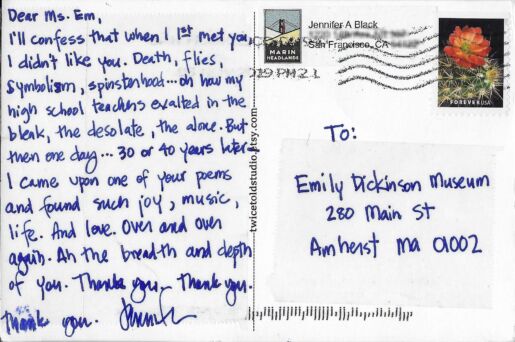 Dear Ms. Em,
I'll confess that when I 1st met you,
I didn't like you. Death, flies,
symbolism, spinsterhood...oh how my
high school teachers exalted in the
bleak, the desolate, the alone. But
then one day... 30 or 40 years later
I came upon one of your poems
and found such joy, music,
life. And love. Over and over
again. Ah the breadth and depth
of you. Thank you. Thank you.
Thank you. Jennifer
twicetoldstudio.etsy.com
MARIN
HEADLANDS
Jennifer A Black
San Francisco, CA
FOREVER USA
To:
Emily Dickinson Museum
280 Main St
Amherst Ma 01002